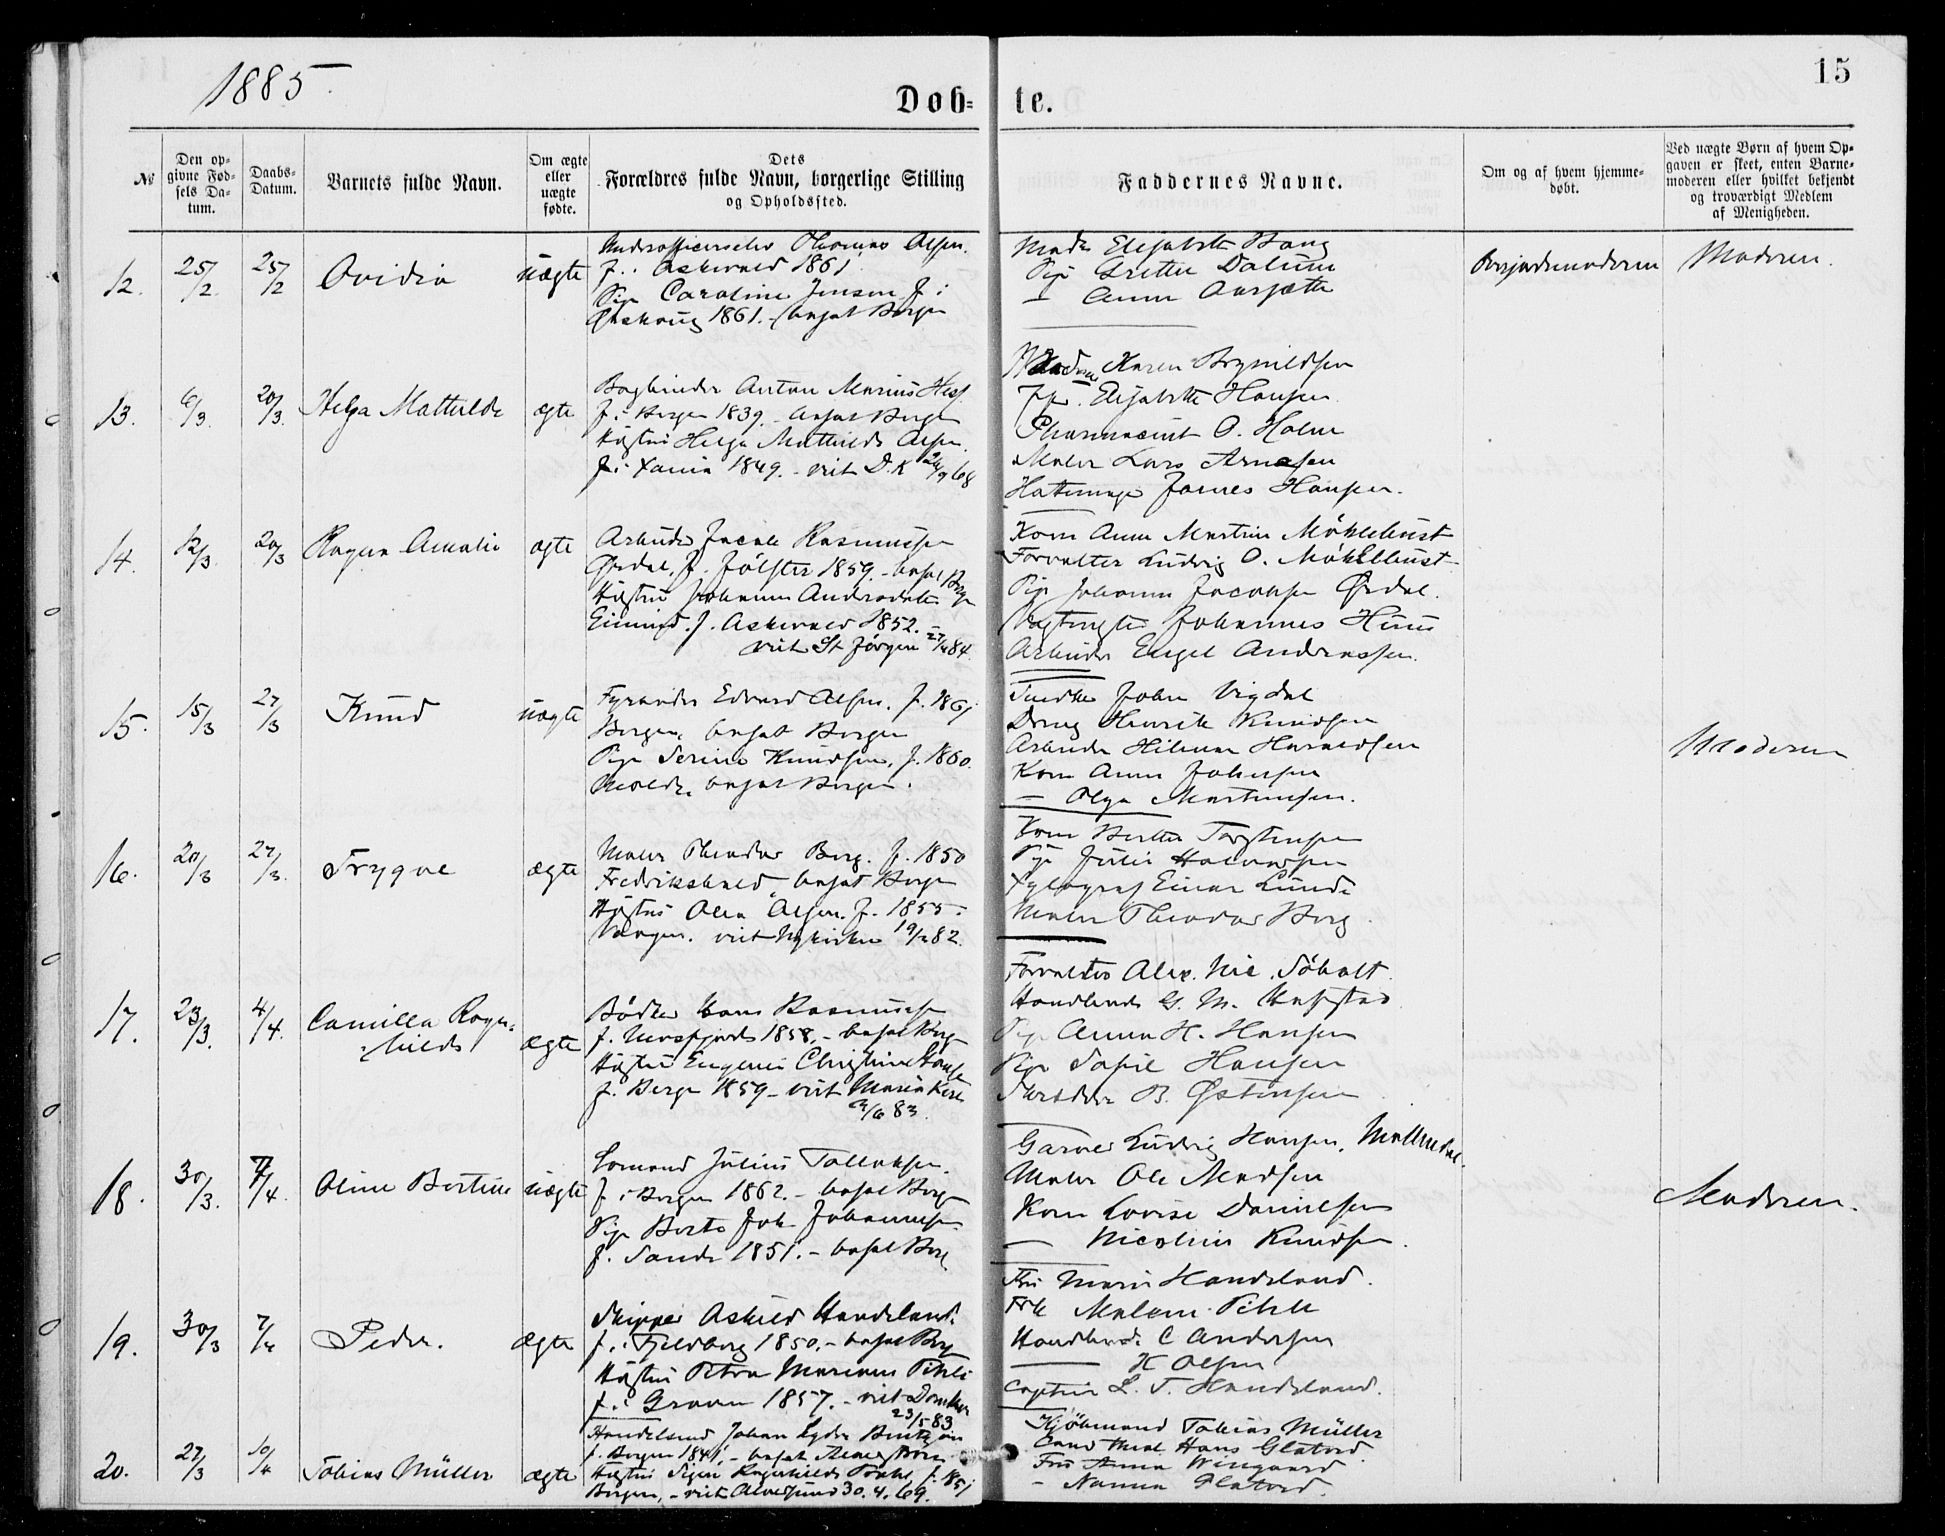 1885
15
Døb- te.
№
Den op-
givne Fød-
sels Da-
tum.
Daabs-
Datum.
Barnets fulde Navn.
Om ægte
eller
uægte
fødte.
Dets
Forældres fulde Navn, borgerlige Stilling
og Opholdssted.
Faddernes Navne.
Om og af hvem hjemme-
døbt.
Ved uægte Børn af hvem Op-
gaven er skeet, enten Barne-
moderen eller hvilket bekjendt
og troværdigt Medlem
af Menigheden.
12. 25/2 25/2 Ovidia uægte
Underofficerselev Thomas Olsen.
f. i Askevold 1861
Pige Caroline Jensen f. i
Ørskoug 1861. - bosat Bergen
Madm Elisabeth Bang
Pige Grethe Dalum
— Anna
Moderen.
13. 6/3 20/3 Helga Mathilde ægte
Bogbinder Anton Marius Hess
f. i Bergen 1839. - bosat Bergen
Hustru Helga Mathilde Olsen
f. i Xania 1849. - viet D.K 24/9 68
Karen Brynildsen
Elisabeth Hansen
Pharmaceut O. Holm
Maler Lars Arnesen
Hattemager James Hansen.
14. 12/3 20/3 Ragna Amalie ægte
Arbeider Jacob Rasmussen
Ørdal, f. Jølster 1859. - bosat Berg
Hustru Johanne Andersdatter
f. Askevold 1852. -
viet St Jørgen 27/4 84.
Kone Anna Martine Møhlehust
Forvalter Ludvig O. Møhlehust
Pige Johanna Jacobsen Ørdal.
Johannes Huus
Arbeider Engel Andersen.
15. 15/3 27/3 Knud uægte
Fyrbøder Edvard Olsen. f. 1861
Bergen, bosat Bergen
Pige Serine Knudsen, f. 1860.
Molde, bosat Bergen.
Snedker John Vigdal
Dreng Henrik Knudsen
Arbeider Hilmar Haraldsen
Kone Anna Johnsen
— Olga Martinsen.
Moderen
16. 20/3 27/3 Trygve ægte
Maler Theodor Berg. f. 1850
Fredrikshald, bosat Bergen
Hustru Olea Olsen. f. 1855.
Vangen. viet Nykirken 19/2 82.
Kone Berthe Torstensen
Pige Julie Halvorsen
Xylograf Einar Lunde
Maler Theodor Berg.
17. 23/3 4/4. Camilla Ragn-
hilde ægte
Bødker Hans Rasmussen
f. 1858, - bosat Berg
Hustru Eugenie Christine Hansen
f. Bergen 1859 - viet Maria Kirk
/6 83.
Forvalter Alex. Nic. Søholt.
Handlende G. M.
Pige Anna H. Hansen
Pige Sofie Hansen
Skrædder B. Østensen
18. 30/3. 7/4. Oline Bertine uægte
Sømand Julius Tollaksen.
f. i Bergen 1862. - bosat Berg
Pige Berte Joh. Johannesen
f. Sande 1851. - bosat Berg
Garver Ludvig Hansen, Møllendal.
Maler Ole Madsen
Kone Lovise Danielsen
— Nicoline Knudsen.
Moderen.
19. 30/3 7/4 Peder. ægte
Skipper Askild Handeland.
f. i Fjeldberg 1850. - bosat Berg
Hustru Petra Mariane Pihle
f. i Graven 1857. - viet Domkir
23/5 83
Fru Marie Handeland.
Frk Malene Pihle
Handlende C Andersen
— H Olsen
Captein L. T. Handeland.
20. 27/3 10/4 Tobias Müller ægte
Handelsmand Johan Lyder
f. Bergen 1841, - bosat
Hustru Signe Ragnhilde f. 1851
Bergen, - viet Alversund 30. 4. 69.
Kjøbmand Tobias Müller
Cand theol Hans Glatved
Fru Anna Wingaard
— Nanna Glatved.